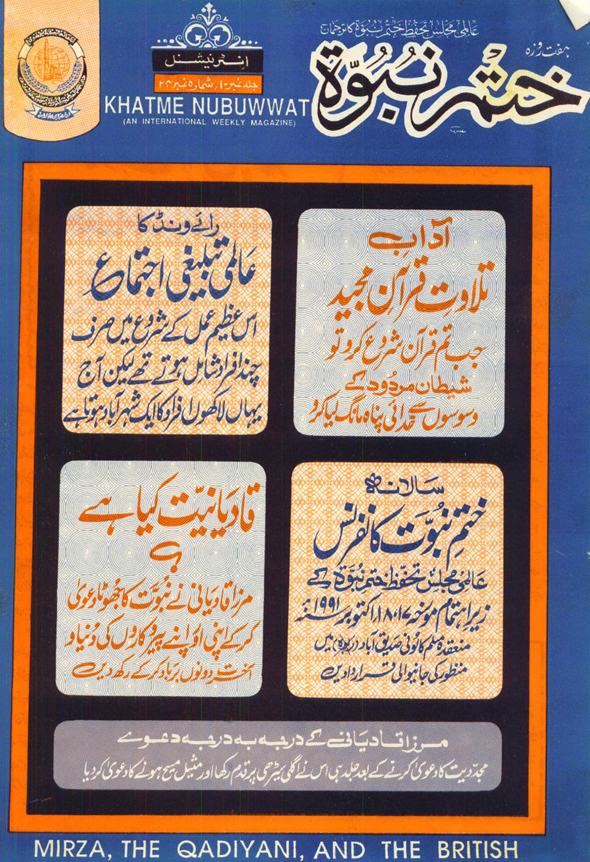 عالمی مجلس تحفظ ختم نبوۃ کا ترجمان
ہفت روزہ
ختم نبوۃ
انٹرنیشنل
جلد نمبر ۱۰ شمارہ نمبر ۲۴
KHATME NUBUWWAT
(AN INTERNATIONAL WEEKLY MAGAZINE)
آداب
تلاوت قرآن مجید
جب تم قرآن شروع کرو تو
شیطان مردود کے
وسوسوں سے خدا کی پناہ مانگ لیا کرو
رائے ونڈ کا
عالمی تبلیغی اجتماع
اس عظیم عمل کے شروع میں صرف
چند افراد شامل ہوتے تھے لیکن آج
یہاں لاکھوں افراد کا ایک شہر آباد ہوتا ہے
سالانہ
ختم نبوت کانفرنس
عالمی مجلس تحفظ ختم نبوۃ کے
زیر اہتمام مورخہ ۱۷، ۱۸ اکتوبر سنہ ۱۹۹۱
منعقدہ مسلم کالونی صدیق آباد (ربوہ) میں
منظور کی جانیوالی قراردادیں
قادیانیت کیا ہے
؟
مرزا قادیانی نے نبوت کا جھوٹا دعویٰ
کر کے اپنی اور اپنے پیروکاروں کی دنیا و
آخرت دونوں برباد کر کے رکھ دیں
مرزا قادیانی کے درجہ بہ درجہ دعوے
مجددیت کا دعویٰ کرنے کے بعد جلد ہی اس نے اگلی سیڑھی پر قدم رکھا اور مثیل مسیح ہونے کا دعویٰ کر دیا
MIRZA, THE QADIYANI, AND THE BRITISH